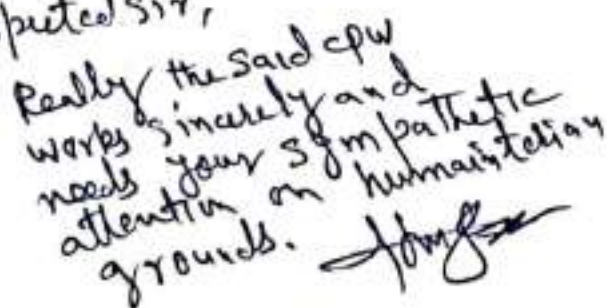 pected sir,
Really the said cpw
works sincerely and
needs your sympathetic
attention on humaintelian
grounds.